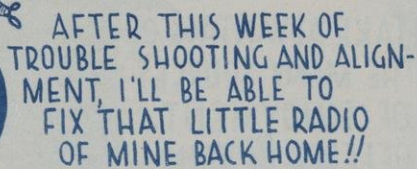 AFTER THIS WEEK OF
TROUBLE SHOOTING AND ALIGN-
MENT, I'LL BE ABLE TO
FIX THAT LITTLE RADIO
OF MINE BACK HOME!!